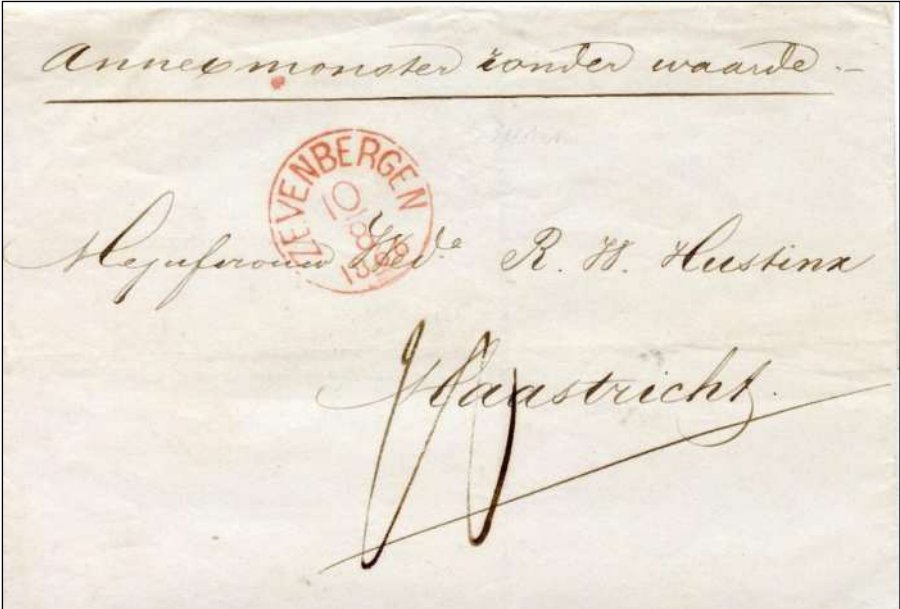 Annex monster zonder waarde.-
ZEVENBERGEN
10/8
Mejufvrouw Wed.e R. W. Hustinx
Maastricht.